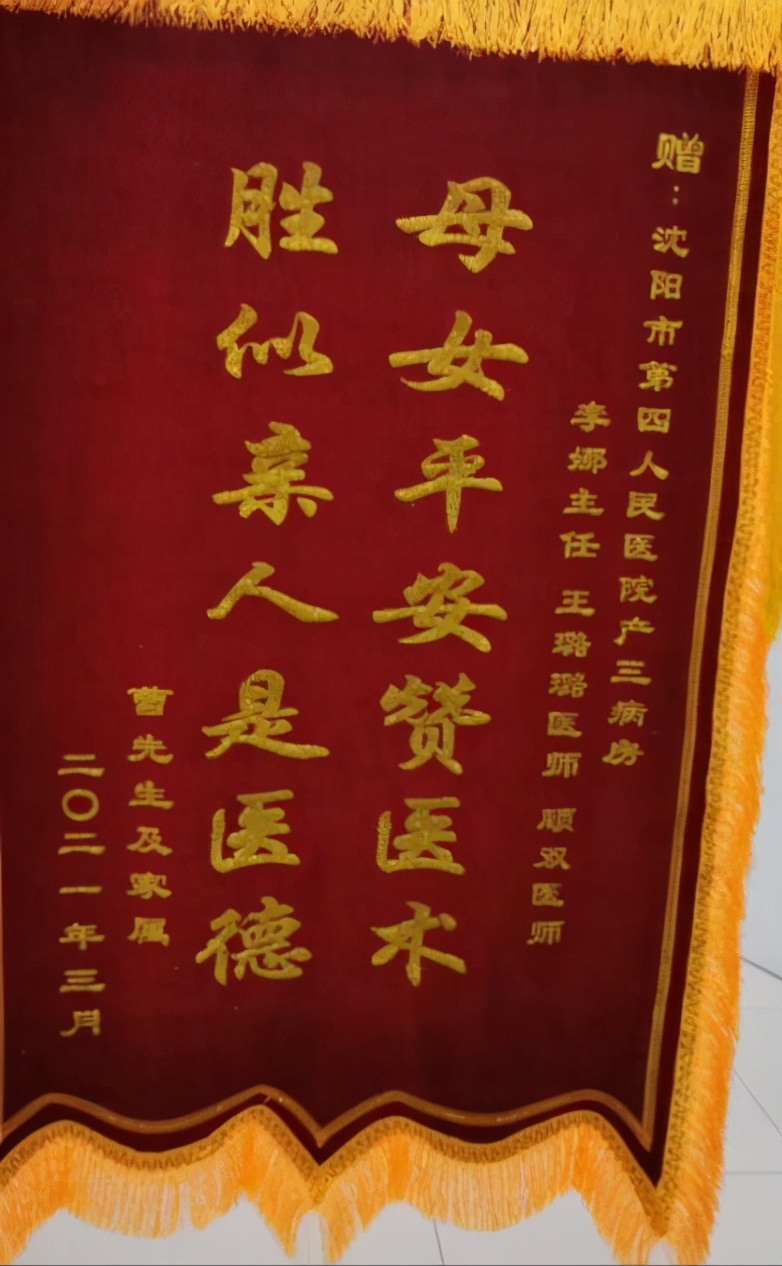 赠：沈阳市第四人民医院产三病房
李娜主任 王璐璐医师 顾双医师
母女平安赞医术
胜似亲人是医德
苗先生及家属
二〇二一年三月